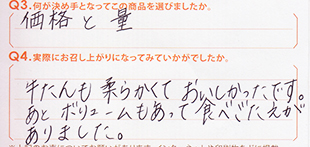 Q3.何が決め手となってこの商品を選びましたか。
価格と量
Q4.実際にお召し上がりになってみていかがでしたか。
牛たんも柔らかくておいしかったです。
あとボリュームもあって食べごたえが
ありました。